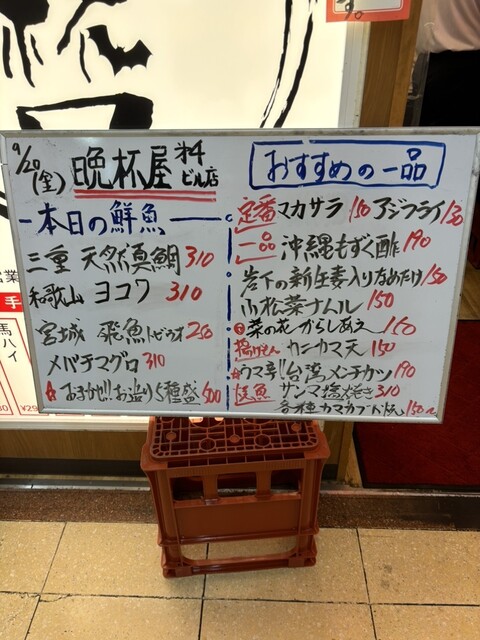 9/20
(金)
晩杯屋 オ4
ビル店
おすすめの一品
本日の鮮魚
三重 天然真鯛 310
和歌山 ヨコワ 310
宮城 飛魚トビウオ 250
メバチマグロ 310
☆おまかせ!!お造り5種盛 500
定番 マカサラ 150 アジフライ 130
一品 沖縄もずく酢 190
岩下の新生姜入りなめたけ 150
小松菜ナムル 150
菜の花 からしあえ 160
揚げもん カニカマ天 150
ウマ辛!!台湾メンチカツ 190
焼魚 サンマ塩焼き 310
各種カマカブト焼 150〜
手
馬
ハイ